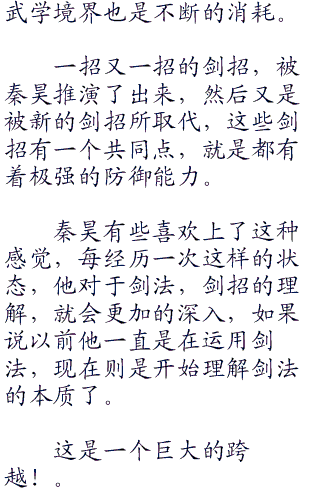 武学境界也是不断的消耗。
一招又一招的剑招，被
秦昊推演了出来，然后又是
被新的剑招所取代，这些剑
招有一个共同点，就是都有
着极强的防御能力。
秦昊有些喜欢上了这种
感觉，每经历一次这样的状
态，他对于剑法，剑招的理
解，就会更加的深入，如果
说以前他一直是在运用剑
法，现在则是开始理解剑法
的本质了。
这是一个巨大的跨
越！。